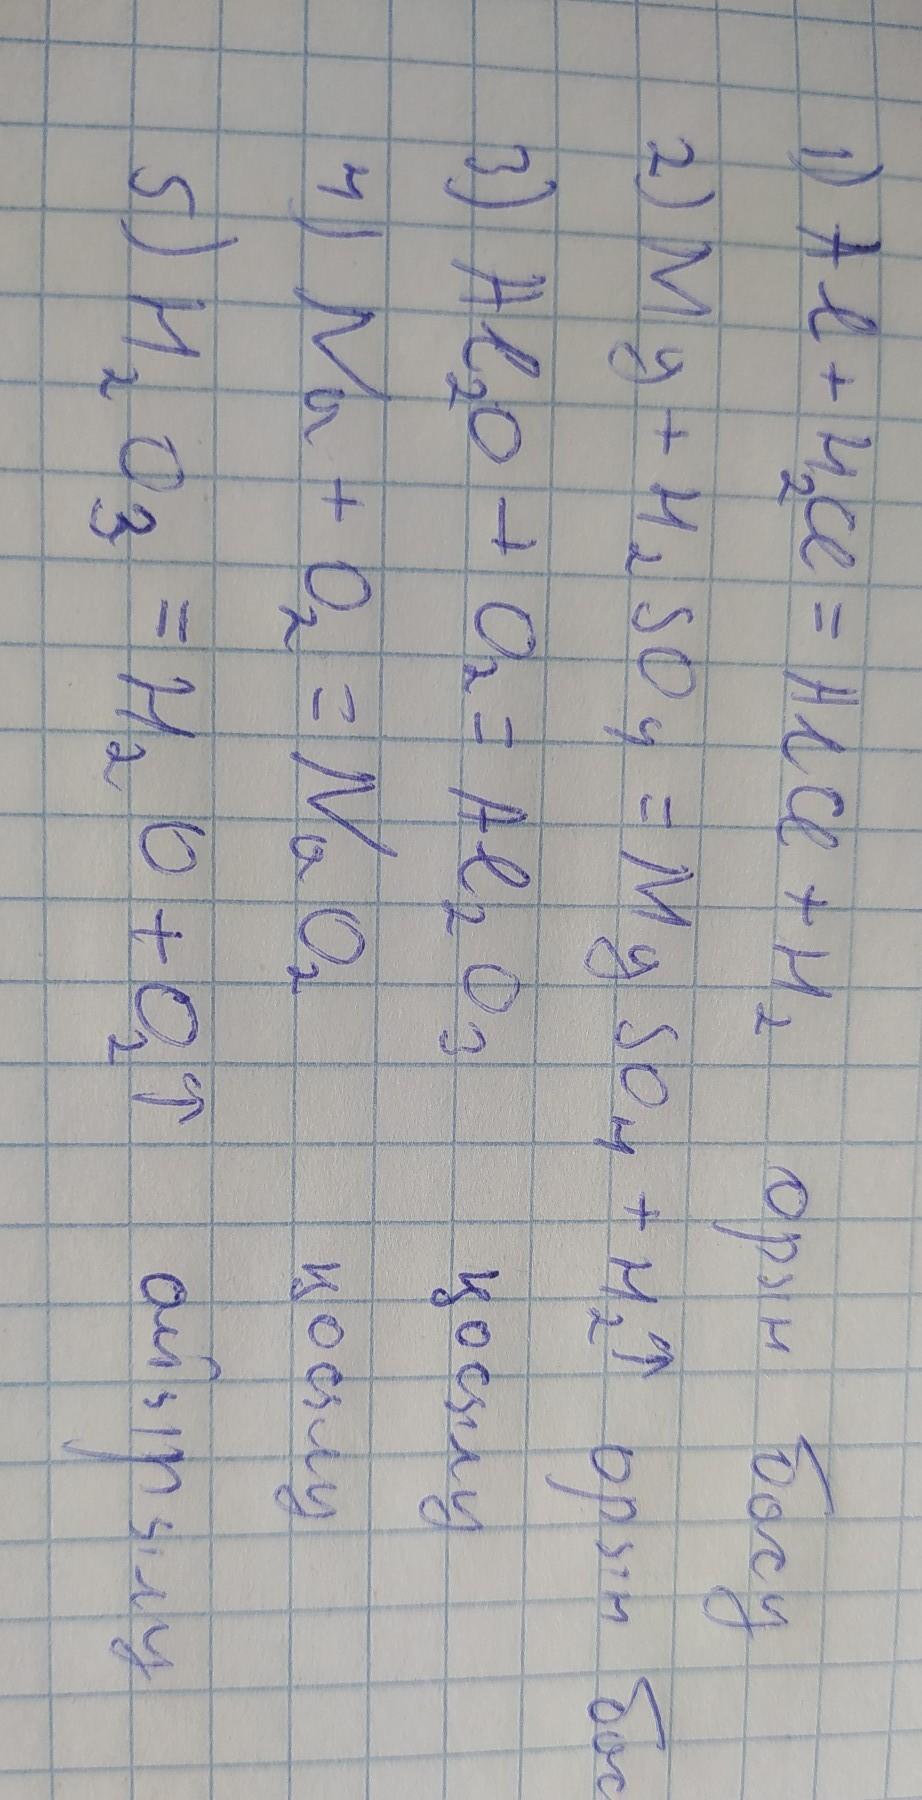 1) Al + H₂Cl = AlCl + H₂ орын басу
2) Mg + H₂SO₄ = MgSO₄ + H₂↑ орын бас
3) Al₂O + O₂ = Al₂O₃ қосылу
4) Na + O₂ = NaO₂ қосылу
5) H₂O₃ = H₂O + O₂↑ айырылу